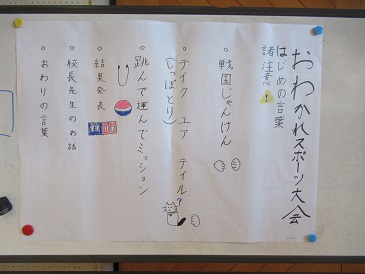 おわかれスポーツ大会
はじめの言葉
諸注意
。戦国じゃんけん
。テイク ユア テイル?
(しっぽとり)
。跳んで運んでミッション
。結果発表
。校長先生のお話
。おわりの言葉